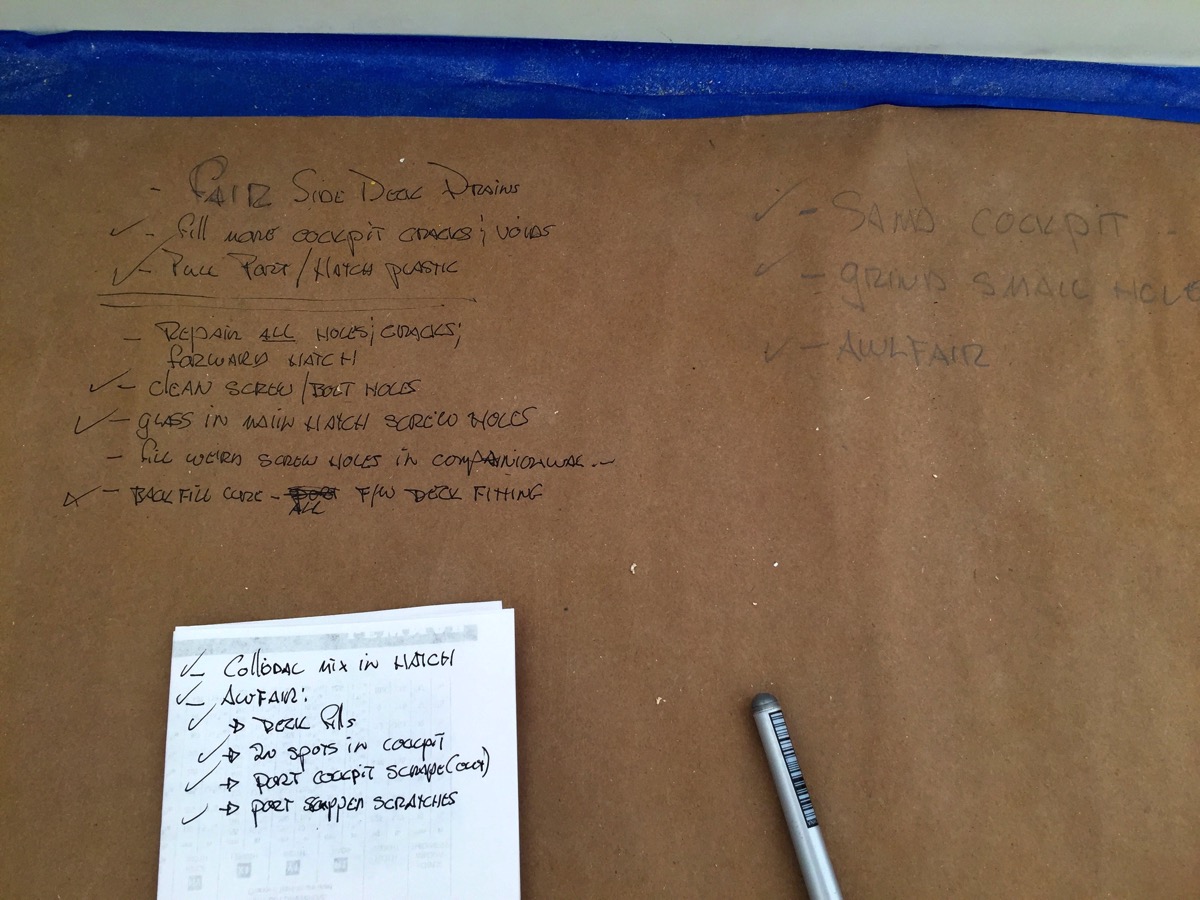 - FAIR SIDE DECK DRAINS
✓ - fill MORE COCKPIT CRACKS; VOIDS
✓ - PULL PORT/HATCH PLASTIC
- REPAIR ALL HOLES; CRACKS;
FORWARD HATCH
✓ - CLEAN SCREW/BOLT HOLES
✓ - GLASS IN MAIN HATCH SCREW HOLES
- fill WEIRD SCREW HOLES IN COMPANIONWAY...
✓ - BACKFILL CORE - ALL F/W DECK FITTING
✓ - SAND COCKPIT
✓ - GRIND SMALL HOLE
✓ - AWLFAIR
✓ - COllODAL MIX IN HATCH
✓ - AWFAIR:
✓ → DECK fills
✓ → 20 SPOTS IN COCKPIT
✓ → PORT COCKPIT SCRAPE
✓ → PORT SCRATCHES